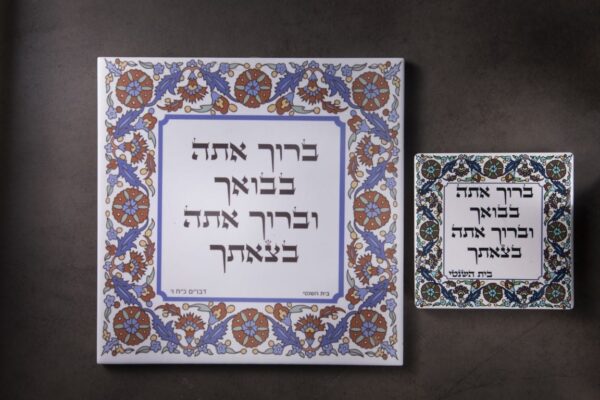 ברוך אתה
בבואך
וברוך אתה
בצאתך
דברים כ״ח ו׳
בית השנטי
ברוך אתה
בבואך
וברוך אתה
בצאתך
בית השנטי